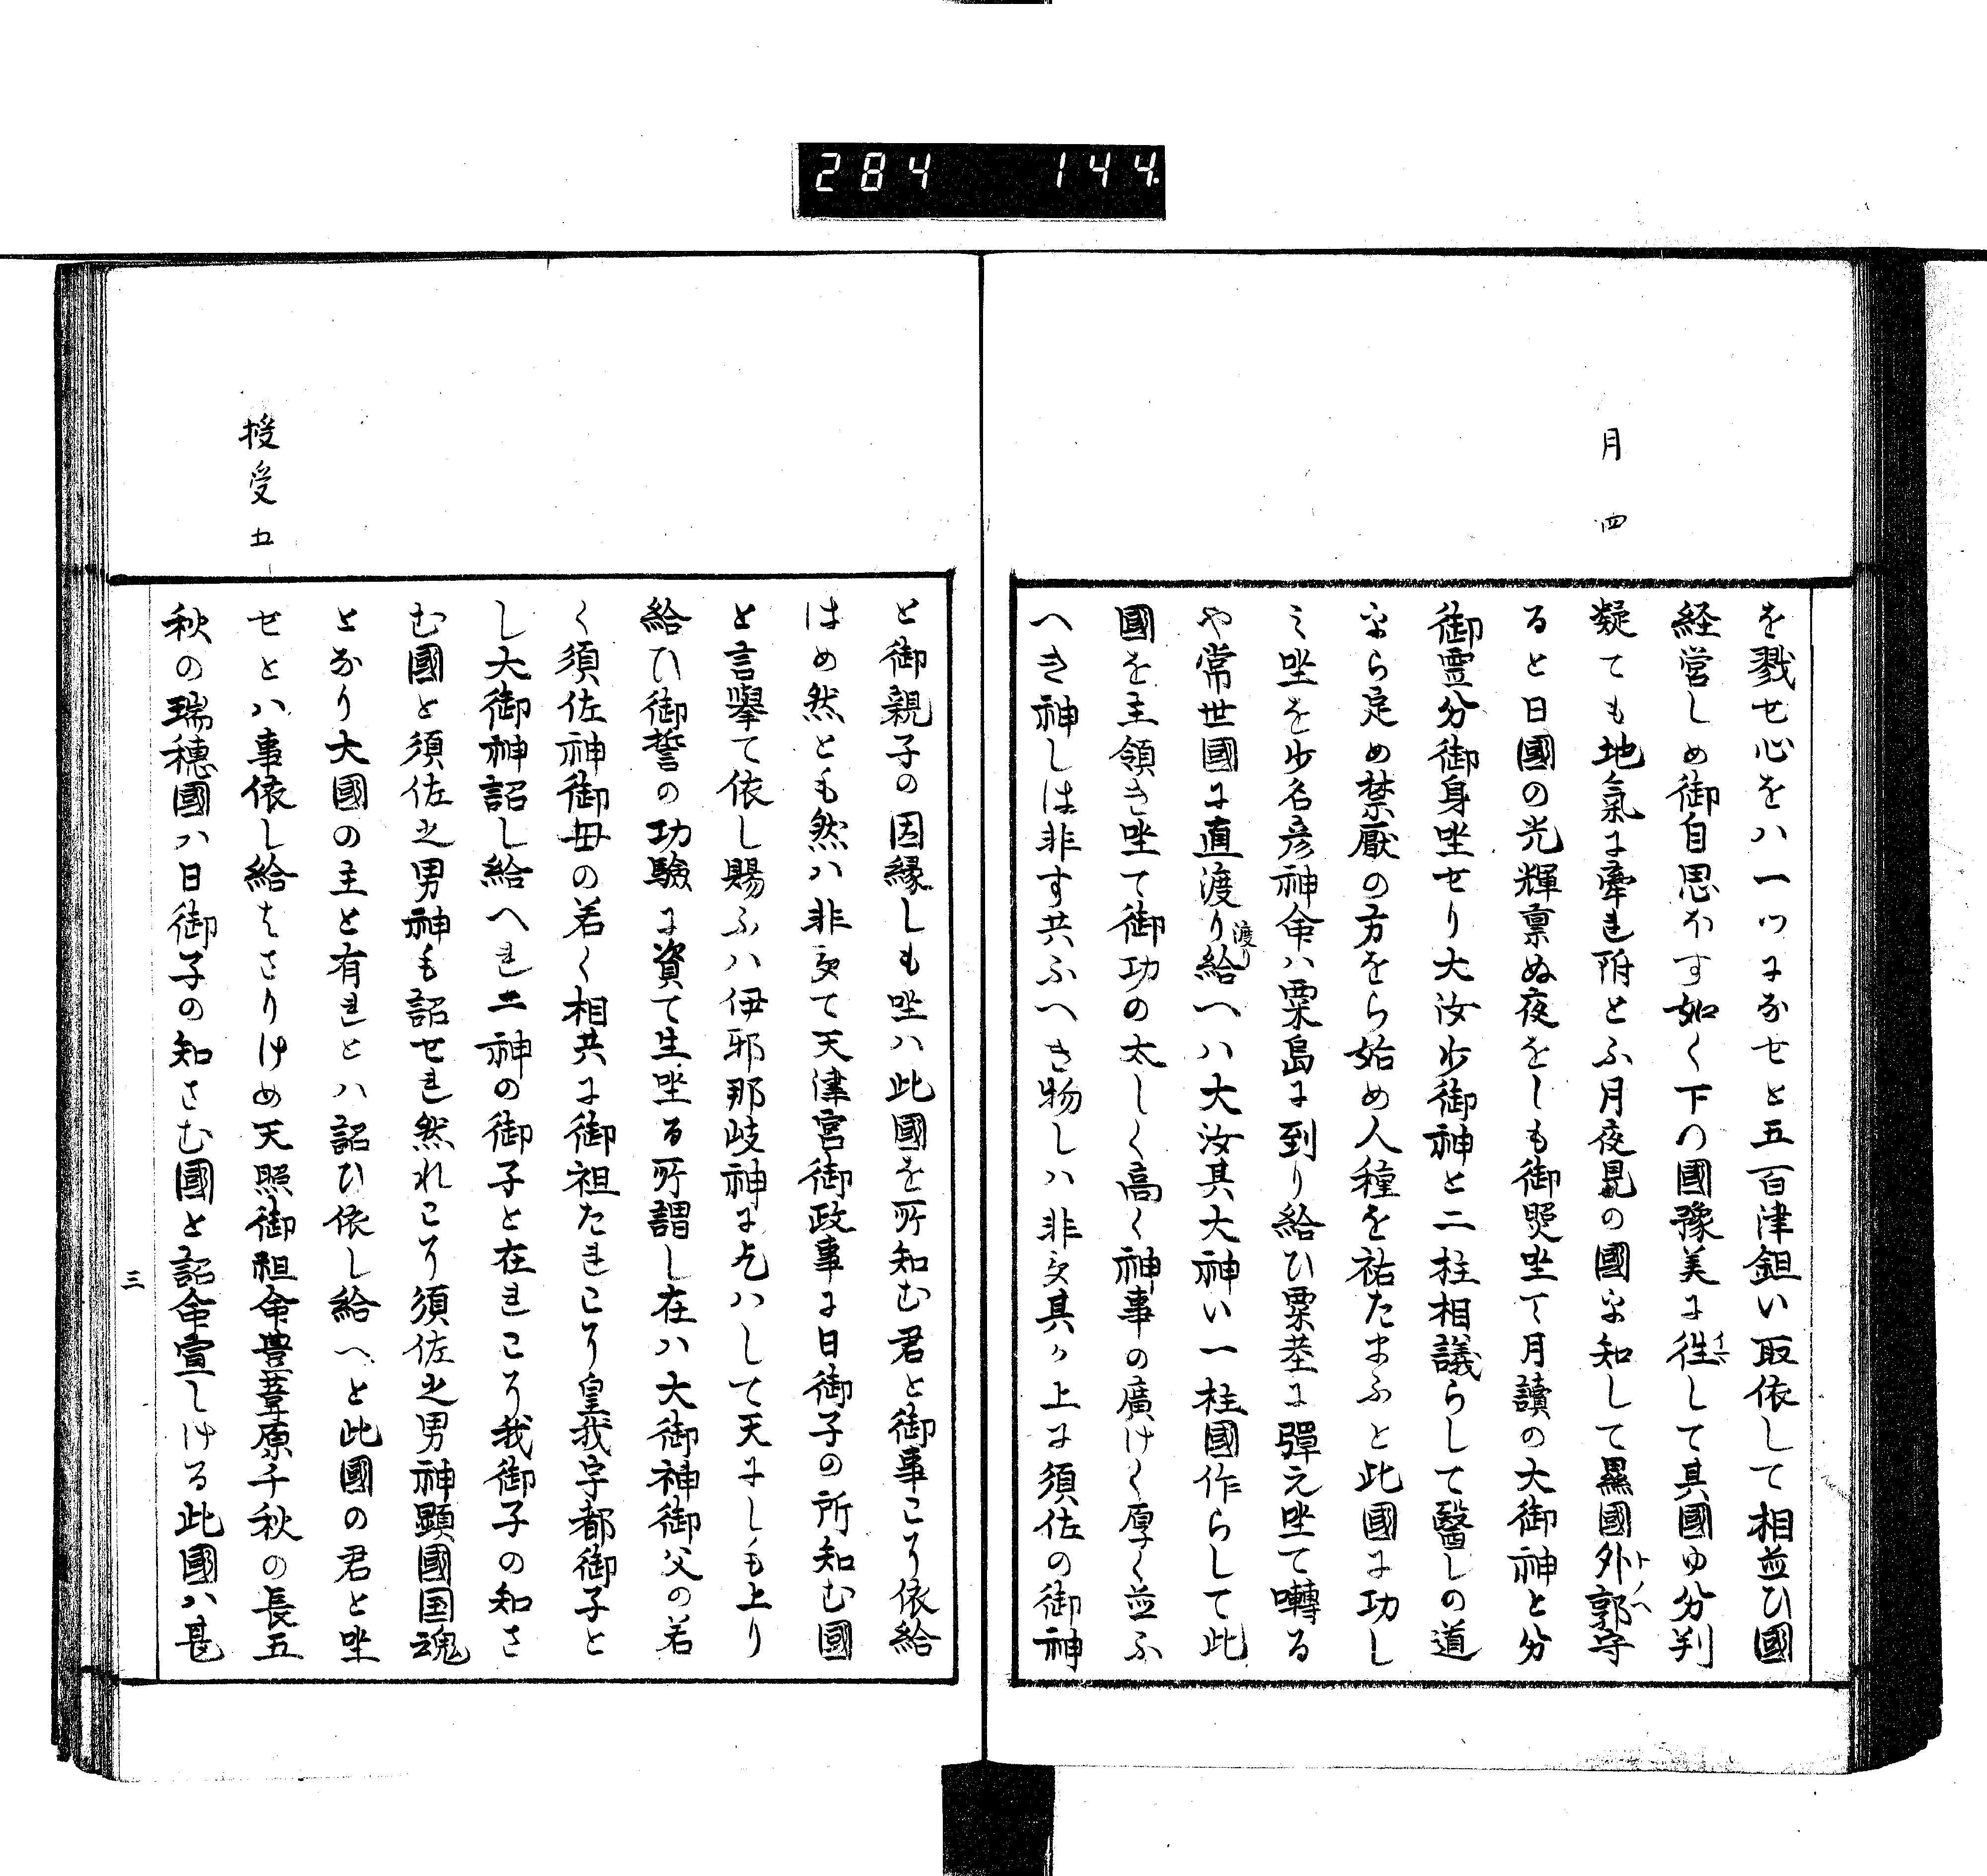 284 144
月四
を戮せ心をハ一ツになせと五百津鉏い取依して相並ひ國
経営しめ御自思ほす如く下つ國豫美に徃して其國ゆ分判
凝ても地氣に牽れ附とふ月夜見の國に知して黒國外郭守
ると日國の光輝禀ぬ夜をしも御照坐て月讀の大御神と分
御霊分御身坐せり大汝少御神と二柱相議らして醫しの道
ゆら定め禁厭の方をら始め人種を祐たまふと此國に功し
み坐を少名彦神命ハ粟島に到り給ひ粟茎に彈え坐て囀る
や常世國に直渡り給へハ大汝其大神い一柱國作らして此
渡り
國を主領き坐て御功の太しく高く神事の廣けく厚く並ふ
へき神しは非す共ふへき物しハ非す其か上に須佐の御神
と御親子の因縁しも坐ハ此國を所知む君と御事こそ依給
はめ然とも然ハ非すて天津宮御政事に日御子の所知む國
と言擧て依し賜ふハ伊邪那岐神に乞ハして天にしも上り
給ひ御誓の功驗に資て生坐る所謂し在ハ大御神御父の若
く須佐神御母の若く相共に御祖たれこそ皇我宇都御子と
し大御神詔し給へれ二神の御子と在れこそ我御子の知さ
む國と須佐之男神も詔せれ然れこそ須佐之男神顕國国魂
となり大國の主と有れとハ詔ひ依し給へと此國の君と坐
授受五
せとハ事依し給はさりけめ天照御祖命豊葦原千秋の長五
秋の瑞穂國ハ日御子の知さむ國と詔命宣しける此國ハ甚
三